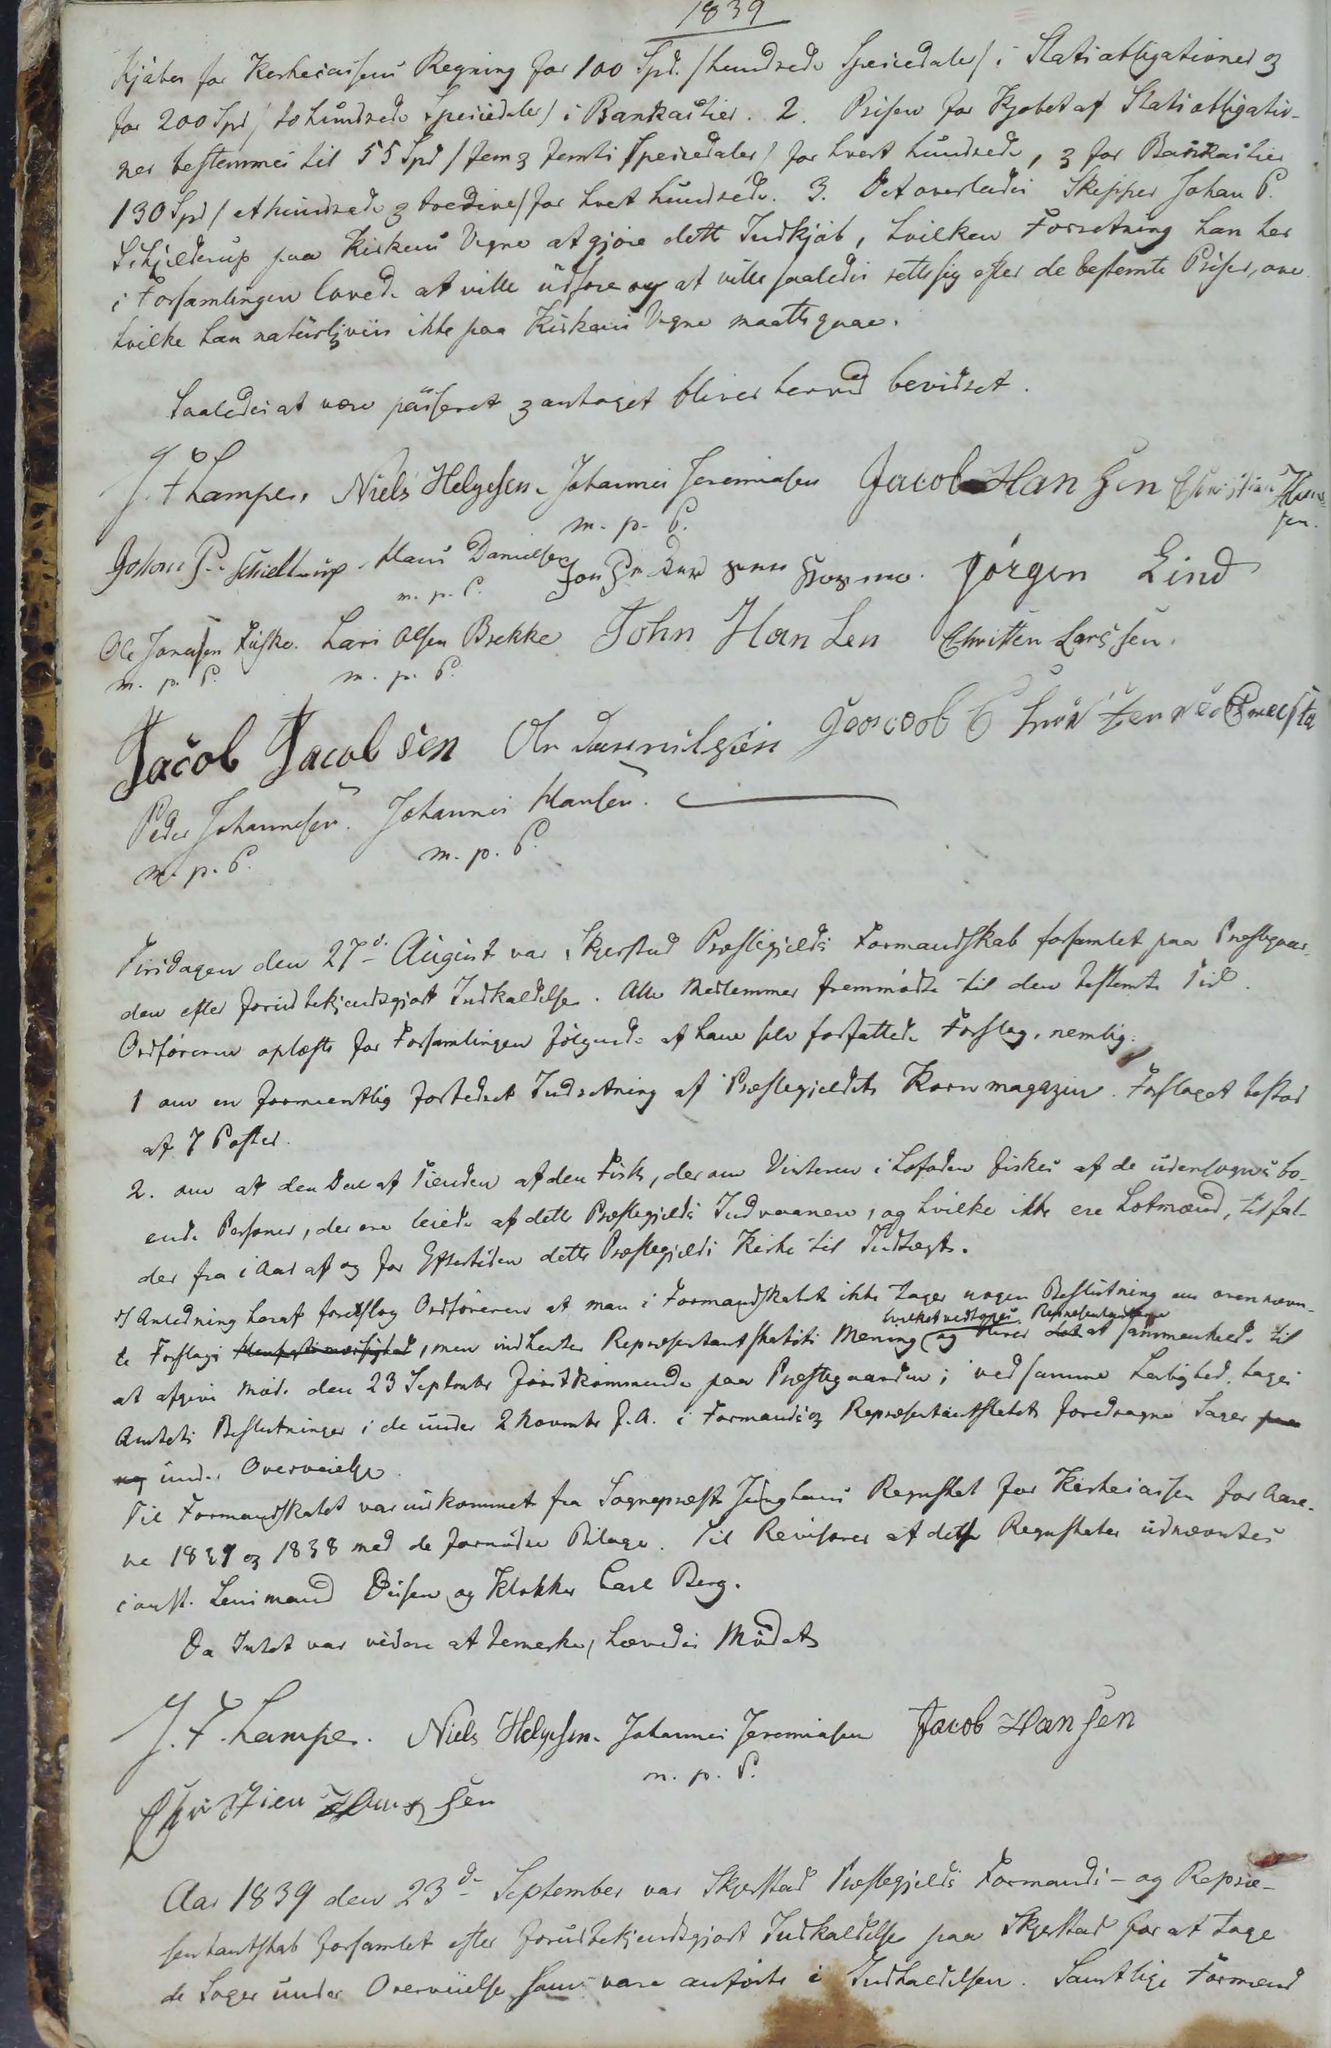 1839
kjøbes for Kirkecassens Regning for 100 Spd. /hundrede Speciedaler/ i Statsobligationer og
for 200 Spd / to hundrede Speciedaler/ i Bankactier. 2. Prisen for Kjøbet af Statsobligatio-
ner bestemmes til 55 Spd /fem og femti Speciedaler/ for hvert hundrede, og for Bankactier
130 Spd / et hundrede og tredive/ for hvert hundrede. 3. Det overlades Skipper Johan P.
Schjelderup paa Kirkens Vegne at gjøre dette Indkjøb, hvilken Forretning han her
i Forsamlingen lovede at ville udføre og at ville saaledes rette sig efter de bestemte Priser, over
hvilke han naturligviis ikke paa Kirkens Vegne maatte gaae.
Saaledes at være passeret og antaget bliver herved bevidnet.
J. F. Lampe. Niels Helgesen. Johannes Jeremiasen Jacob Hansen Christian Han-
sen.
m. p. P.
Johan P. Schieldrup. Hans Danielsen Jørgen Lind
m. p. P.
Ole Jonassen Fiske. Lars Olsen Brekke John Hansen Christen Larssen.
m. p. P. m. p. P.
Jacob Jacobsen Ole Danielsen Jacob
Peder Johannesen. Johannes Hansen.
m. p. P. m. p. P.
Tirsdagen den 27d August var Skjerstad Præstegjelds Formandskab forsamlet paa Præstegaar-
den efter forud bekjendtgjort Indkaldelse. Alle Medlemmer fremmødte til den bestemte Tid.
Ordføreren oplæste for Forsamlingen følgende af ham selv forfattede Forslag, nemlig:
1 om en formeentlig forbedret Indretning af Præstegjeldets Kornmagazin. Forslaget bestod
af 7 Poster.
2. om at den Deel af Tienden af den Fisk, der om Vinteren i Lofoden fiskes af de udensogns bo-
ende Personer, der ere leiede af dette Præstegjelds Indvaanere, og hvilke ikke ere Lotmænd, tilfal-
der fra i Aar af og for Eftertiden dette Præstegjelds Kirke til Indtægt.
I Anledning heraf foreslog Ordføreren at man i Formandskabet ikke tager nogen Beslutning om ovennævn-
hvilket vedtoges Repræsentanterne
te Forslags , men indhenter Repræsentantskabets Mening og bliver at sammenkalde til
at afgive Møde den 23 September førstkommende paa Præstegaarden; ved samme Leilighed tages
Amtets Beslutninger i de under 2 November f. A. i Formands og Repræsentantskabet foredragne Sager paa
ny under Overveielse.
Til Formandskabet var indkommet fra Sognepræst Junghans Regnskab for Kirkecassen for Aare-
ne 1837 og 1838 med de fornødne Bilage. Til Revisorer af dette Regnskaber udnævntes
const. Lensmand Ursin og Klokker Carl Berg.
Da Intet var videre at bemerke, hævedes Mødet
J. F. Lampe. Niels Helgesen. Johannes Jeremiasen Jacob Hansen
m. p. P.
Christian Hansen
Aar 1839 den 23d September var Skjerstad Præstegjelds Formands- og Repræ-
sentantskab forsamlet efter forud bekjendtgjort Indkaldelse paa Skjerstad for at tage
de Sager under Overveielse, som vare anførte i Indkaldelsen. Samtlige Formænd